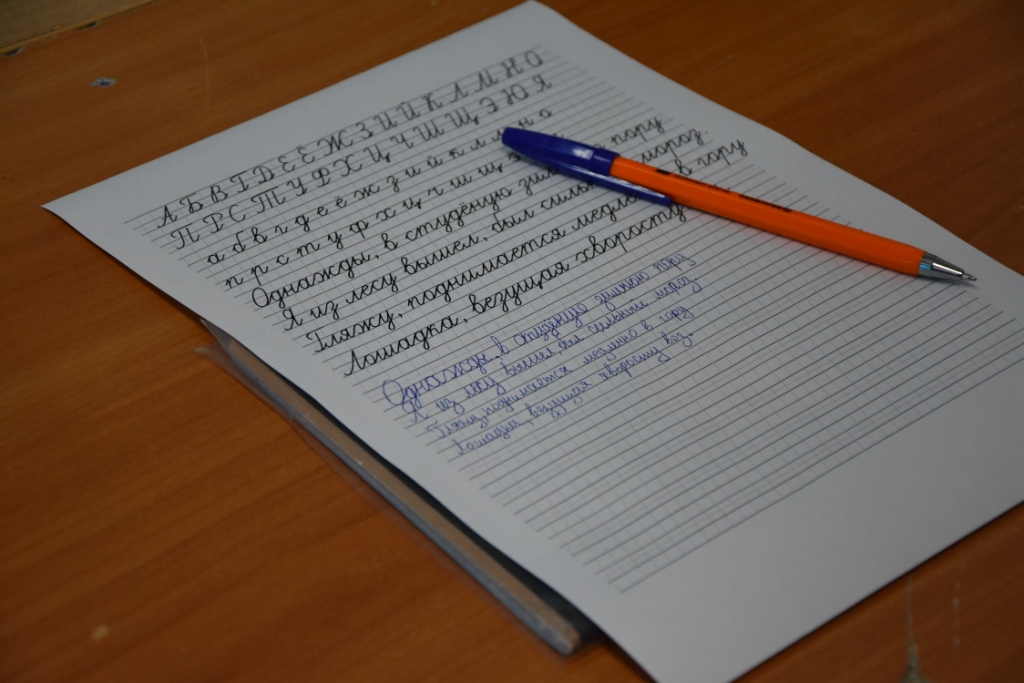 А Б В Г Д Е Ё Ж З И Й К Л М Н О
П Р С Т У Ф Х Ц Ч Ш Щ Э Ю Я
а б в г д е ё ж з и й к л м н о
п р с т у ф х ц ч ш щ
Однажды, в студёную пору
Я из лесу вышел, был мороз.
Гляжу, поднимается в гору
Лошадка, везущая хворосту
Однажды, в студеную зимнюю пору
Я из лесу вышел, был сильный мороз
Гляжу, поднимается медленно в гору
Лошадка, везущая хворосту воз.